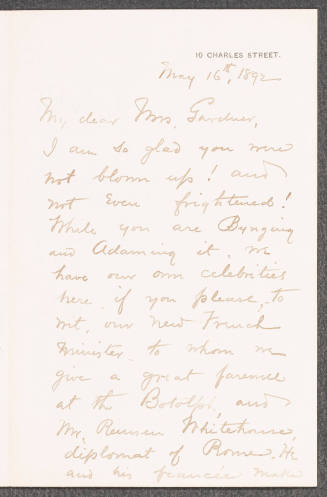 10 CHARLES STREET.
May 16th, 1892
My dear Mrs. Gardner,
I am so glad you were
not blown up! and
not even frightened!
While you are Bunging
and Adaming it, we
have our own celebrities
here if you please, to
wit, our new French
Minister to whom we
give a great farewell
at the Botolph, and
Mr. Remsen Whitehouse,
diplomat of Rome. He
and his fiancée make